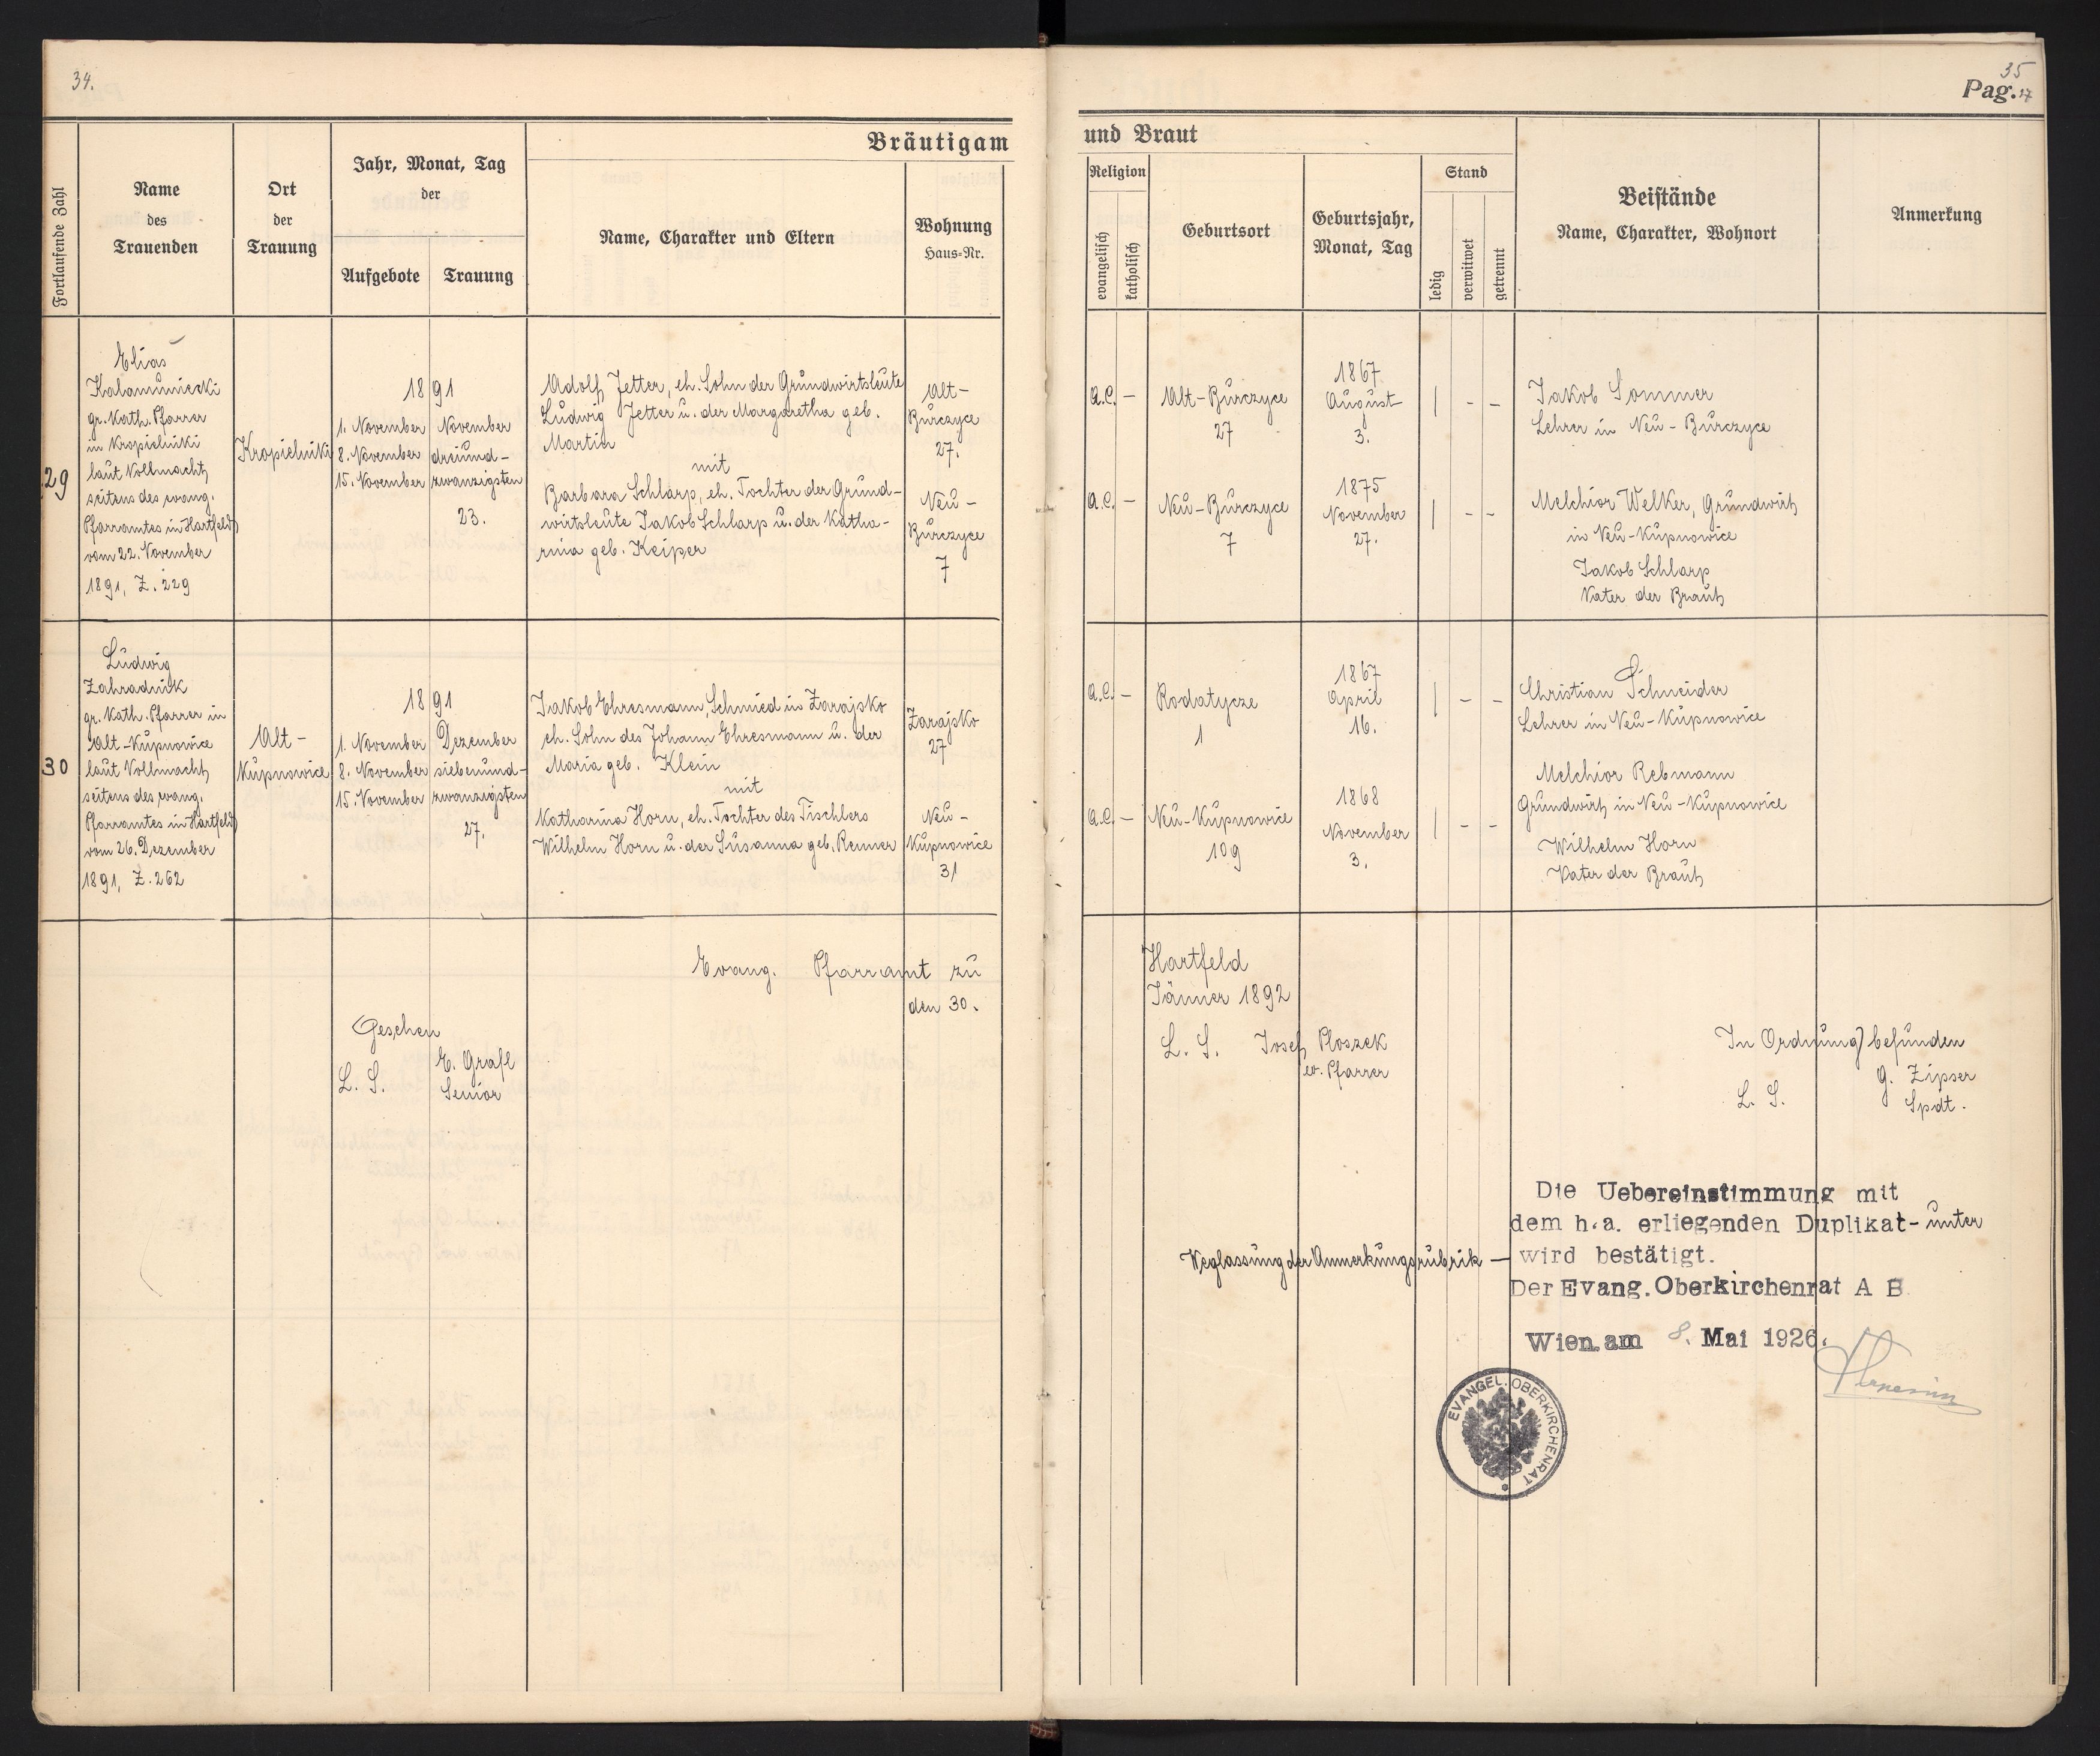 34.
35
Pag. 17
Bräutigam
und Braut
Fortlaufende Zahl
Name
des
Trauenden
Ort
der
Trauung
Jahr, Monat, Tag
der
Aufgebote
Trauung
Name, Charakter und Eltern
Wohnung
Haus-Nr.
Religion
evangelisch
katholisch
Geburtsort
Geburtsjahr,
Monat, Tag
Stand
ledig
verwitwet
getrennt
Beistände
Name, Charakter, Wohnort
Anmerkung
29
Elias
Kalamuniecki
gr. kath. Pfarrer
in Kropielniki
laut Vollmacht
seitens des evang.
Pfarramtes in Hartfeld
vom 22. November
1891, Z. 229
Kropielniki
1891
1. November
8. November
15. November
November
dreiund-
zwanzigsten
23.
Adolf Jetter, eh. Sohn der Grundwirtsleute
Ludwig Jetter u. der Margaretha geb.
Martin
mit
Barbara Schlarp, eh. Tochter der Grund-
wirtsleute Jakob Schlarp u. der Katha-
rina geb. Keiper
Alt-
Burczyce
27.
Neu-
Burczyce
7
A.C. -
Alt-Burczyce
27
1867
August
3.
| - -
Jakob Sommer
Lehrer in Neu-Burczyce
A.C. -
Neu-Burczyce
7
1875
November
27.
| - -
Melchior Welker, Grundwirt
in Neu-Kupnowice
Jakob Schlarp
Vater der Braut
30
Ludwig
Zahradnik
gr. kath. Pfarrer in
Alt-Kupnowice
laut Vollmacht
seitens des evang.
Pfarramtes in Hartfeld
vom 26. Dezember
1891, Z. 262
Alt-
Kupnowice
1891
1. November
8. November
15. November
Dezember
siebenund-
zwanzigsten
27.
Jakob Ehresmann, Schmied in Zarajsko
eh. Sohn des Johann Ehresmann u. der
Maria geb. Klein
mit
Katharina Horn, eh. Tochter des Tischlers
Wilhelm Horn u. der Susanna geb. Renner
Zarajsko
27
Neu-
Kupnowice
31
A.C. -
Rodatycze
1
1867
April
16.
| - -
Christian Schneider
Lehrer in Neu-Kupnowice
A.C. -
Neu-Kupnowice
109
1868
November
3.
| - -
Melchior Rebmann
Grundwirt in Neu-Kupnowice
Wilhelm Horn
Vater der Braut
Evang. Pfarramt zu Hartfeld
den 30. Jänner 1892
L. S. Josef Ploszek
ev. Pfarrer
Geschen
E. Grafl
L. S. Senior
In Ordnung befunden
G. Zipser
L. S. Spdt.
Die Uebereinstimmung mit
dem h.a. erliegenden Duplikat - unter
Weglassung der Anmerkungsrubrik - wird bestätigt.
Der Evang. Oberkirchenrat A B
Wien am 8. Mai 1926.
EVANGEL. OBERKIRCHENRAT